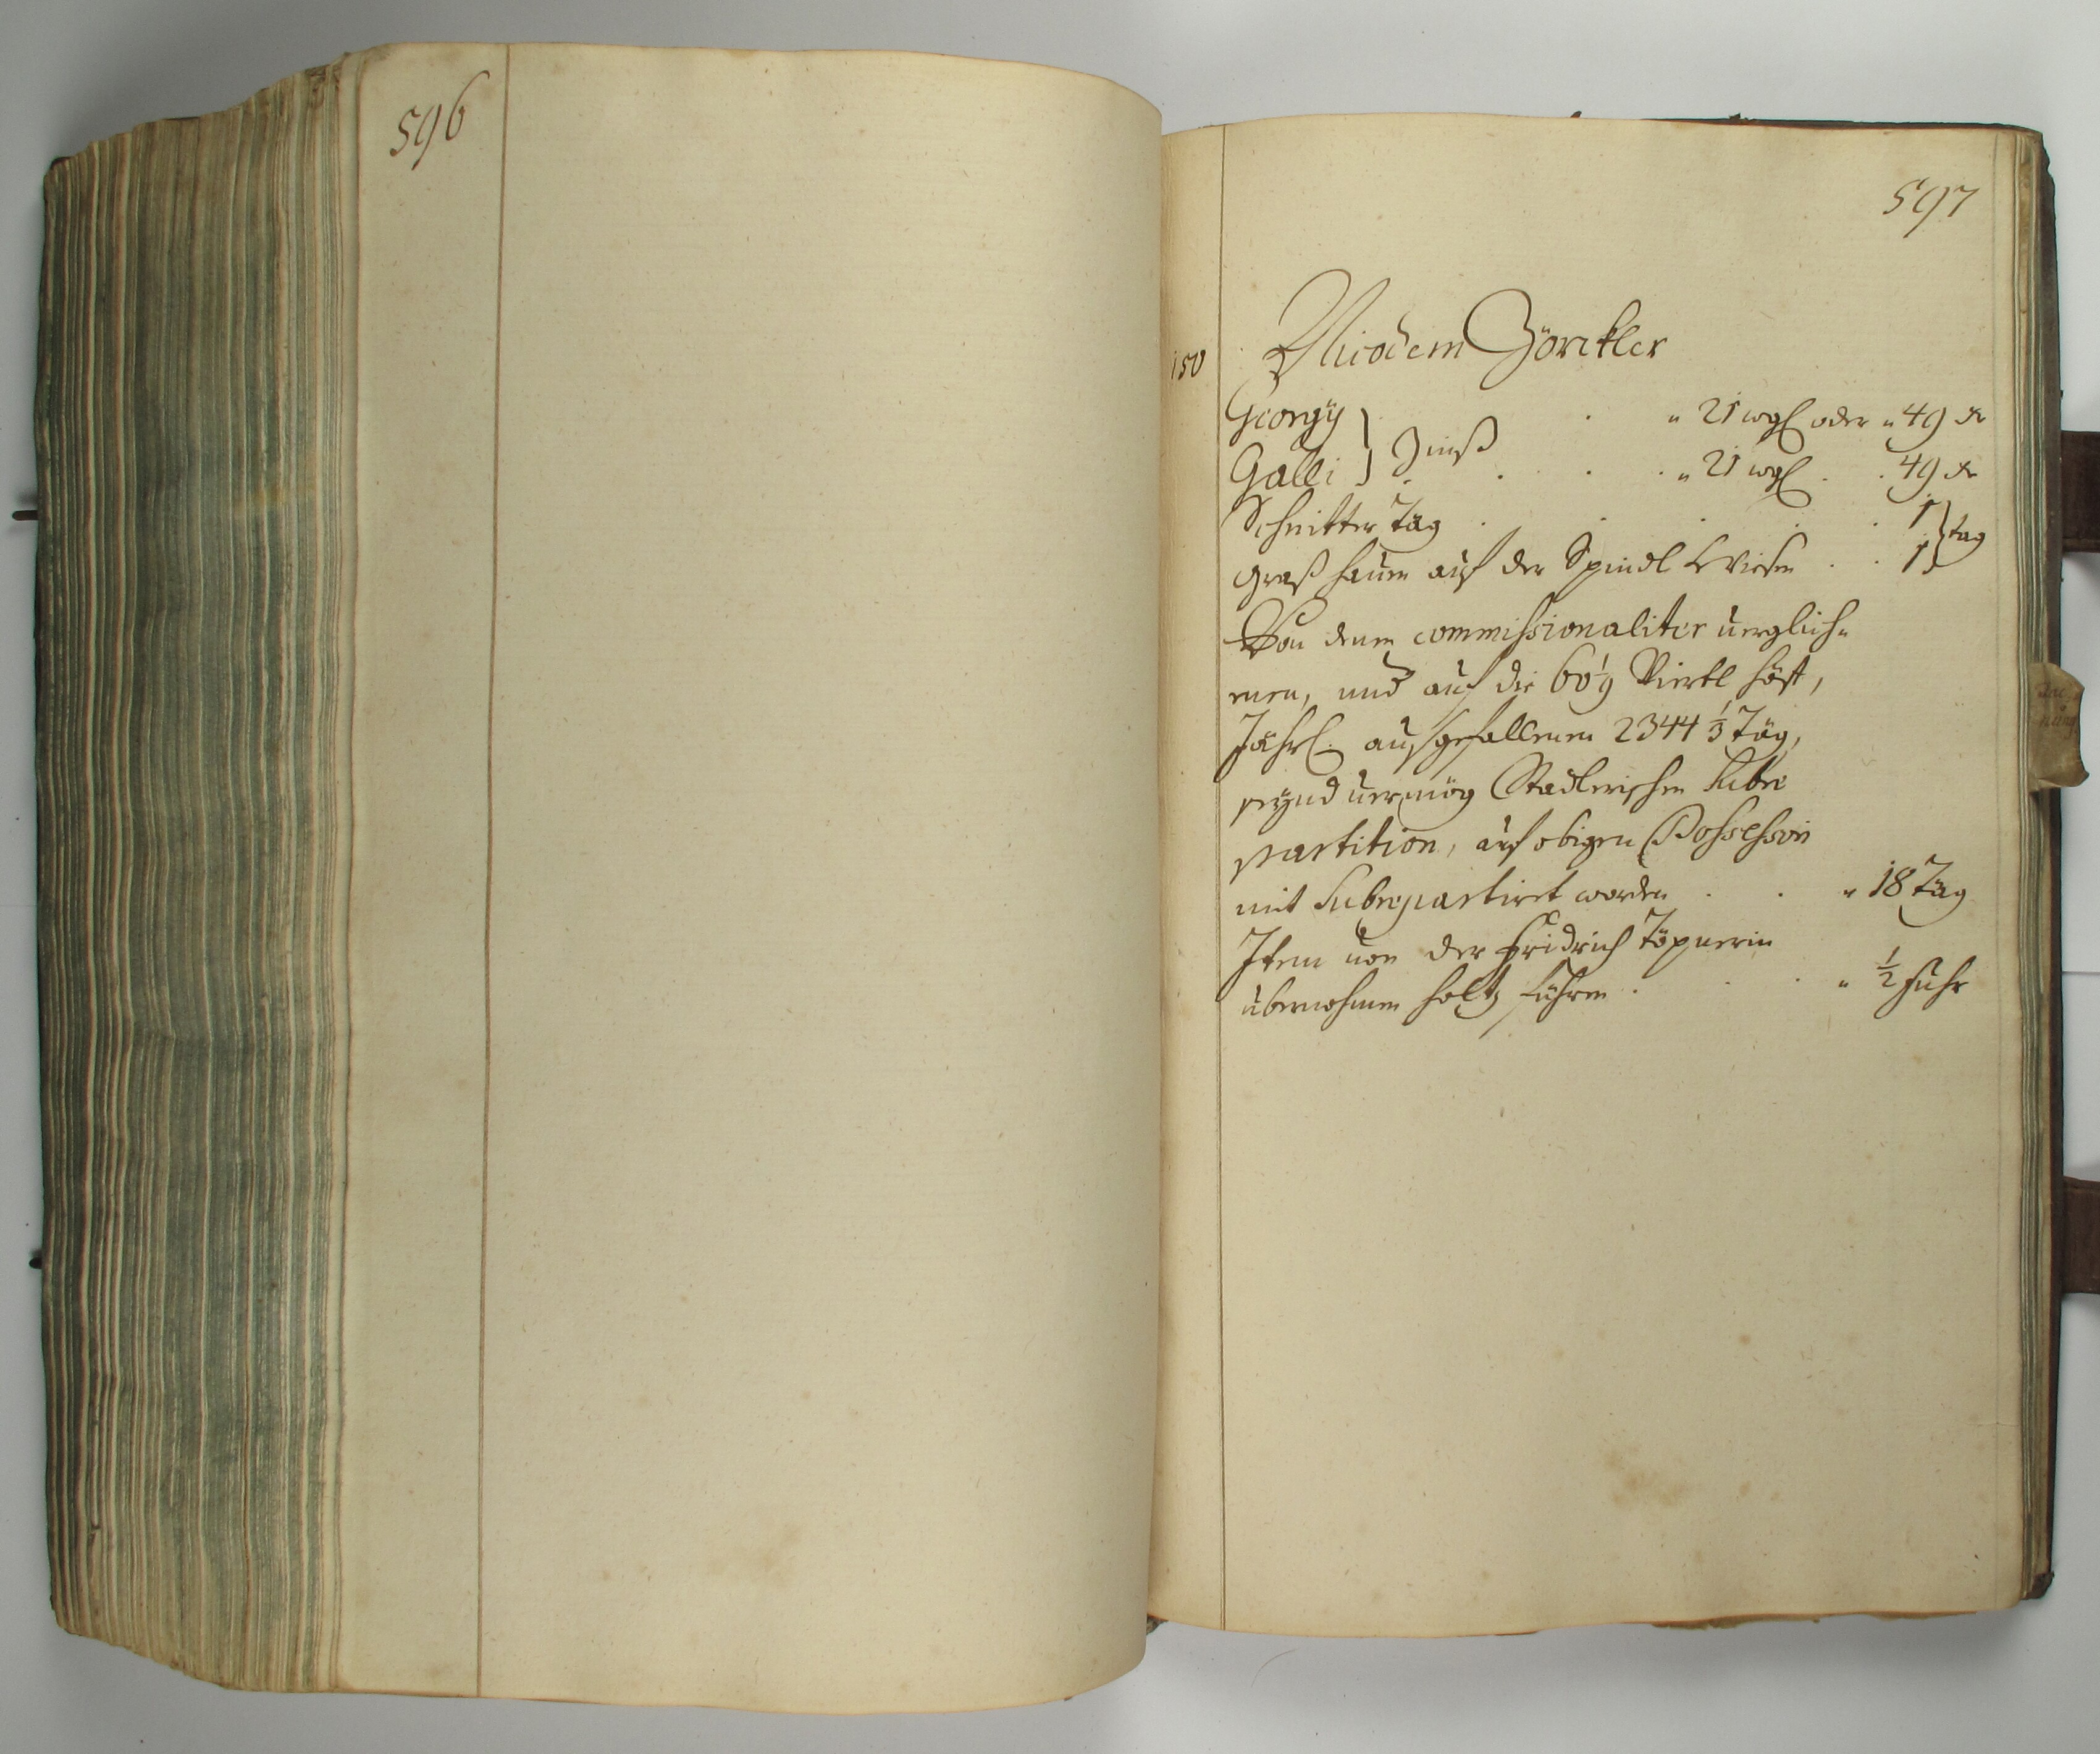 596
597
150
Nicodem Zörckler
Georgÿ
Zinß
" 21 wgl oder " 49 dr
Galli
" 21 wgl . . 49 dr
Schnitter Täg . . . . . 1
tag
graß hauen auf der Spindl Wiesen . . 1
Von denen commissionaliter verglich=
enen, und auf die 60 1/9 Viertl höff,
Jährl. ausgefallenen 2344 1/3 Täg,
seÿnd vermög Stadlerischen Subre
partition, auf obigen Possession
mit Subrepartirt worden . . " 18 Täg
Item von der Fridrich Töpnerin
übernohmen holtz führen . . . " 1/2 fuhr